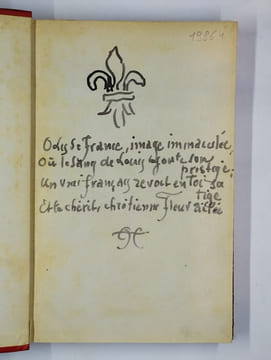 19864
O Lys de France, image immaculée,
Où le sang de Louis ajoute son
prestige,
Un vrai français revoit en Toi sa
tige
Et te chérit, chrétienne Fleur ailée